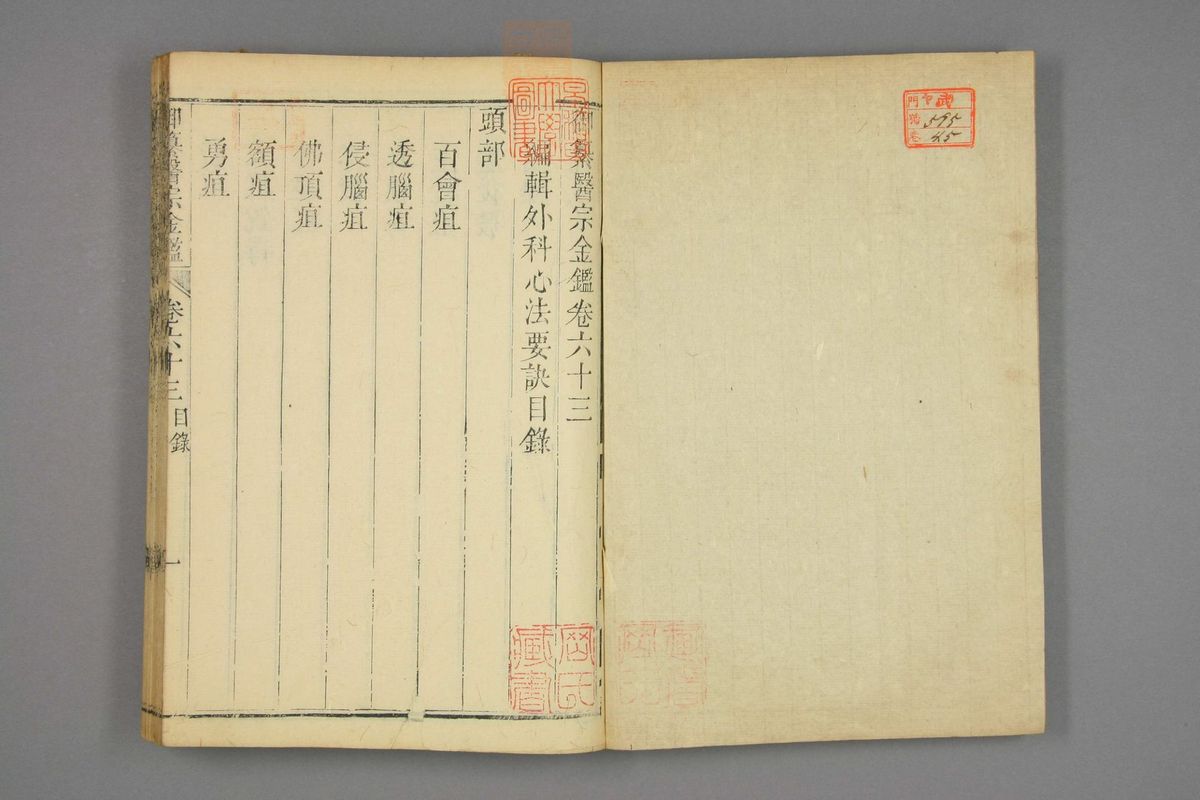 御纂醫宗金鑑卷六十三
編輯外科心法要訣目錄
頭部
百會疽
透腦疽
侵腦疽
佛頂疽
額疽
勇疽
御纂醫宗金鑑 卷六十三 目錄 一
藏書
門
號 595
卷 25